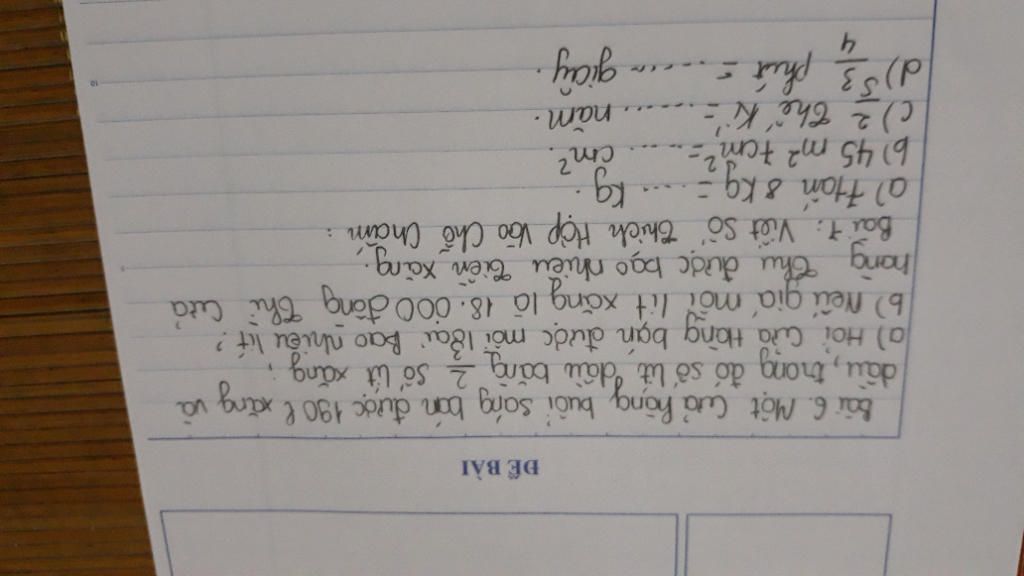 ĐỀ BÀI
Bài 6. Một Cửa hàng buổi sáng bán được 190 l xăng và
dầu, trong đó số lít dầu bằng 2/3 số lít xăng;
a) Hỏi Cửa Hàng bán được mỗi loại Bao nhiêu lít?
b) Nếu giá mỗi lít xăng là 18.000 đồng Thì Cửa
hàng Thu được bao nhiêu Tiền xăng.
Bài 7: Viết Số Thích Hợp Vào Chỗ Chấm:
a) 7 tấn 8 kg = ..... kg.
b) 45 m² 7 cm² = ..... cm².
c) 2/5 Thế Kỉ = ....... năm.
d) 3/4 phút = ....... giây.